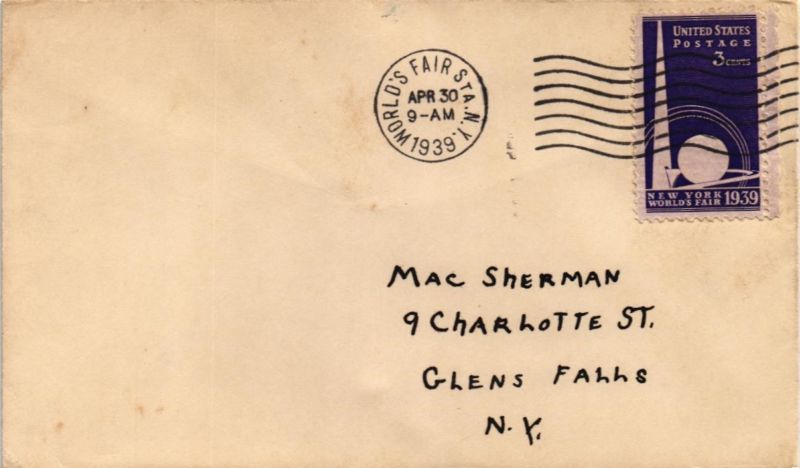 WORLD'S FAIR STA. N.Y.
APR 30
9-AM
1939
UNITED STATES
POSTAGE
3 CENTS
NEW YORK
WORLD'S FAIR 1939
MAC SHERMAN
9 CHARLOTTE ST.
GLENS FALLS
N.Y.